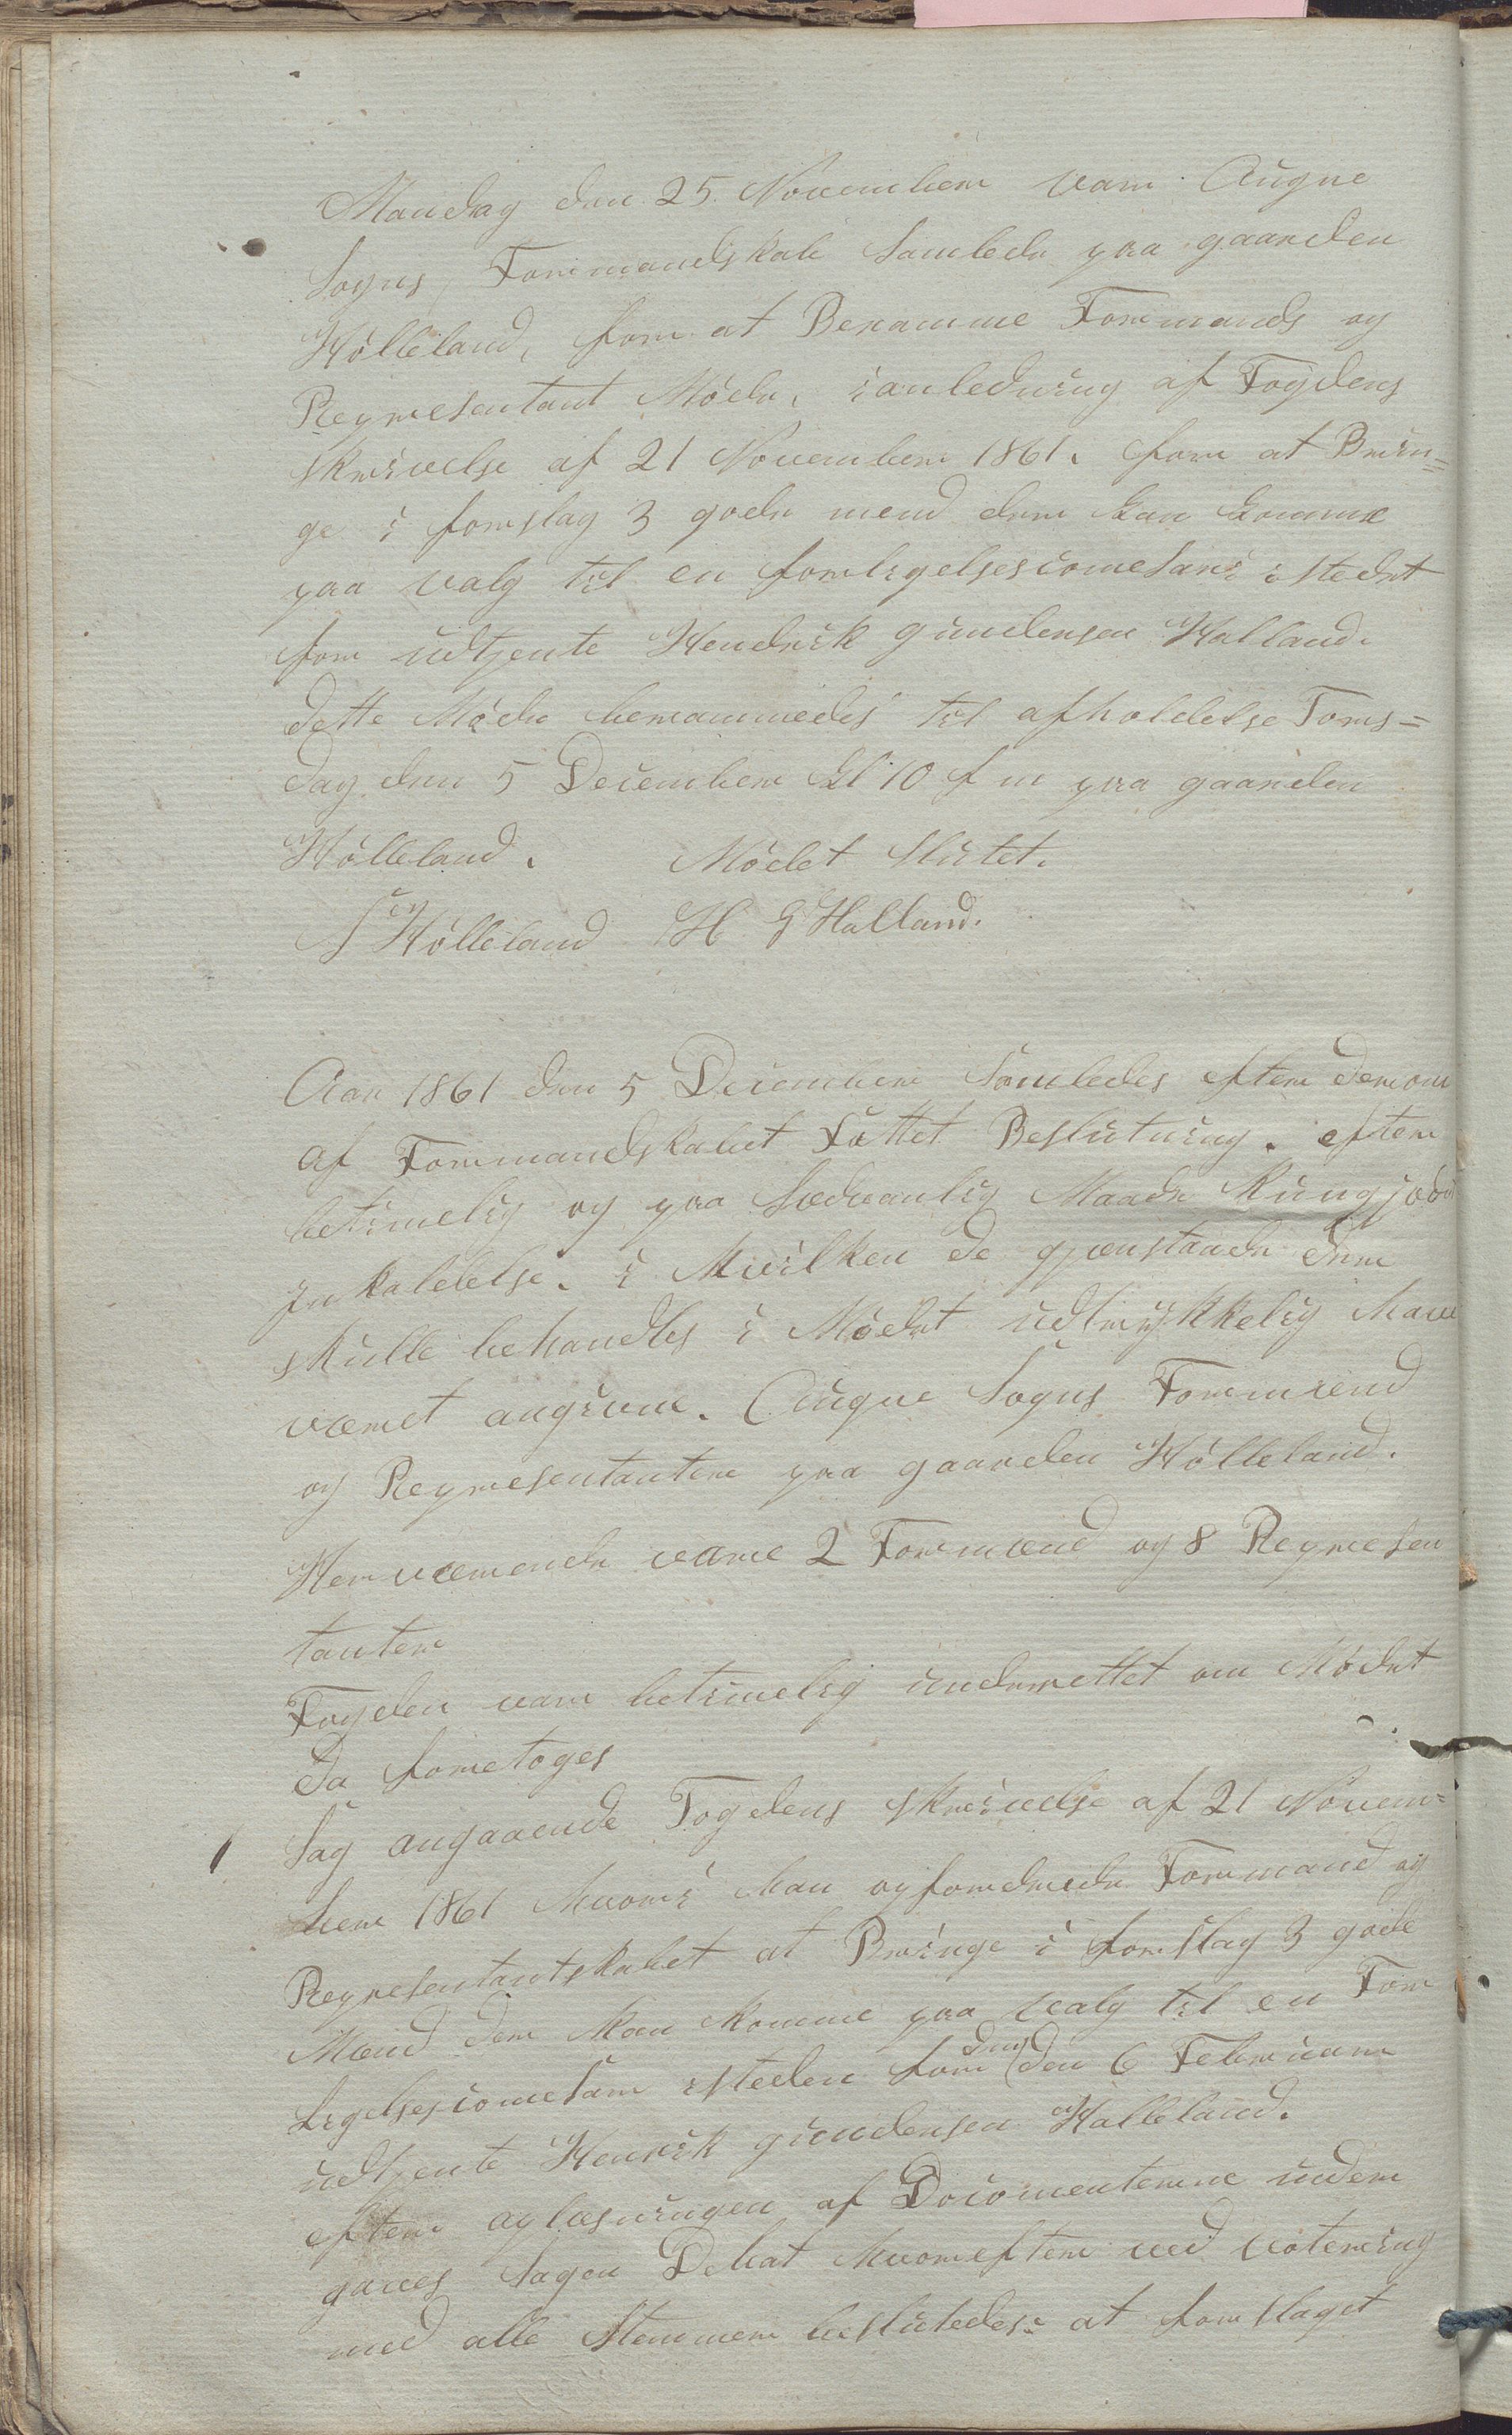 Mandag den 25. November var Augne
Sogns Formandskab Samlede paa gaarden
Hølleland, for at Beramme Formands og
Represendant Møde, i anledning af Fogdens
skrivelse af 21 November 1861. for at Brin=
ge i forslag 3 gode mend der kan komme
paa valg til en forligelsescomesari istedet
for udtjente Hendrik gundersen Halland.
dette Møde berammedes til afholdelse Tors=
dag den 5 December Kl 10 f m paa gaarden
Hølleland. Mødet Slutet.
Hølleland H. G Halland.
Aar 1861 den 5 December Samledes efter derom
af Formandskabet Fattet Beslutning. efter
betimelig og paa Sædvanlig Maade Kungjord
Inkaldelse. i Hvilken de gjenstande der
skulle behandles i Mødet udtrykkelig Have
været angivne. Augne Sogns Formend
og Representanter paa gaarden Hølleland.
Herværende vare 2 Formænd og 8 Represen
tanter
Fogden var betimelig underrettet om Mødet
Da foretoges
1 Sag angaaende Fogdens skrivelse af 21 Novem=
ber 1861 Hvori Han opfordrede Formand og
Representantskabet at Bringe i forslag 3 gode
Mænd der kan komme paa valg til en For
ligelsescomesær isteden for den den 6 Februar
udtjente Henrik gundersen Halleland.
efter oplæsningen af Documenterne under
gaves Sagen Debat Hvorefter ved votering
med alle Stemmer besluttedes: at forslaget